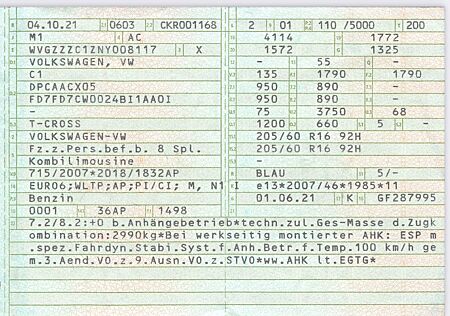 04.10.21 0603 CKR001168
M1 4 AC
WVGZZZC1ZNY008117 3 X
VOLKSWAGEN, VW
C1
DPCAACX05
FD7FD7CW0024BI1AA0I
-
T-CROSS
VOLKSWAGEN-VW
Fz.z.Pers.bef.b. 8 Spl.
Kombilimousine
715/2007*2018/1832AP
EURO6;WLTP;AP;PI/CI; M, N1 I
Benzin
0001 36AP 1498
2 01 110 /5000 200
4114 1772
1572 1325
- 55 -
135 1790 1790
950 890 -
950 890 -
75 3750 68
1200 660 5 -
205/60 R16 92H
205/60 R16 92H
-
BLAU 5/-
e13*2007/46*1985*11
01.06.21 K GF287995
7.2/8.2:+0 b.Anhängebetrieb*techn.zul.Ges-Masse d.Zugk
ombination:2990kg*Bei werkseitig montierter AHK: ESP m
.spez.Fahrdyn.Stabi.Syst.f.Anh.Betr.f.Temp.100 km/h ge
m.3.Aend.VO.z.9.Ausn.VO.z.STVO*ww.AHK lt.EGTG*